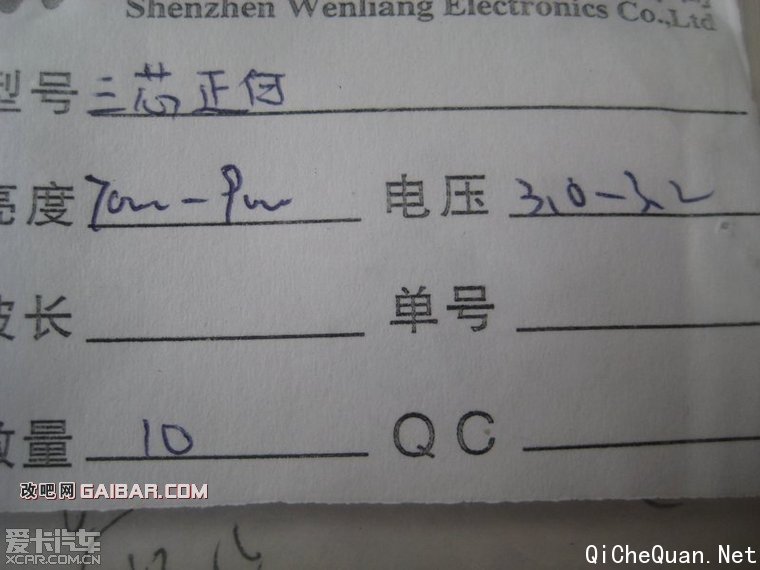 Shenzhen Wenliang Electronics Co.,Ltd
型号 三芯正白
亮度 7000-9000 电压 3.0-3.2
波长 单号
数量 10 QC
改吧网 GAIBAR.COM
爱卡汽车
XCAR.COM.CN
QiCheQuan.Net